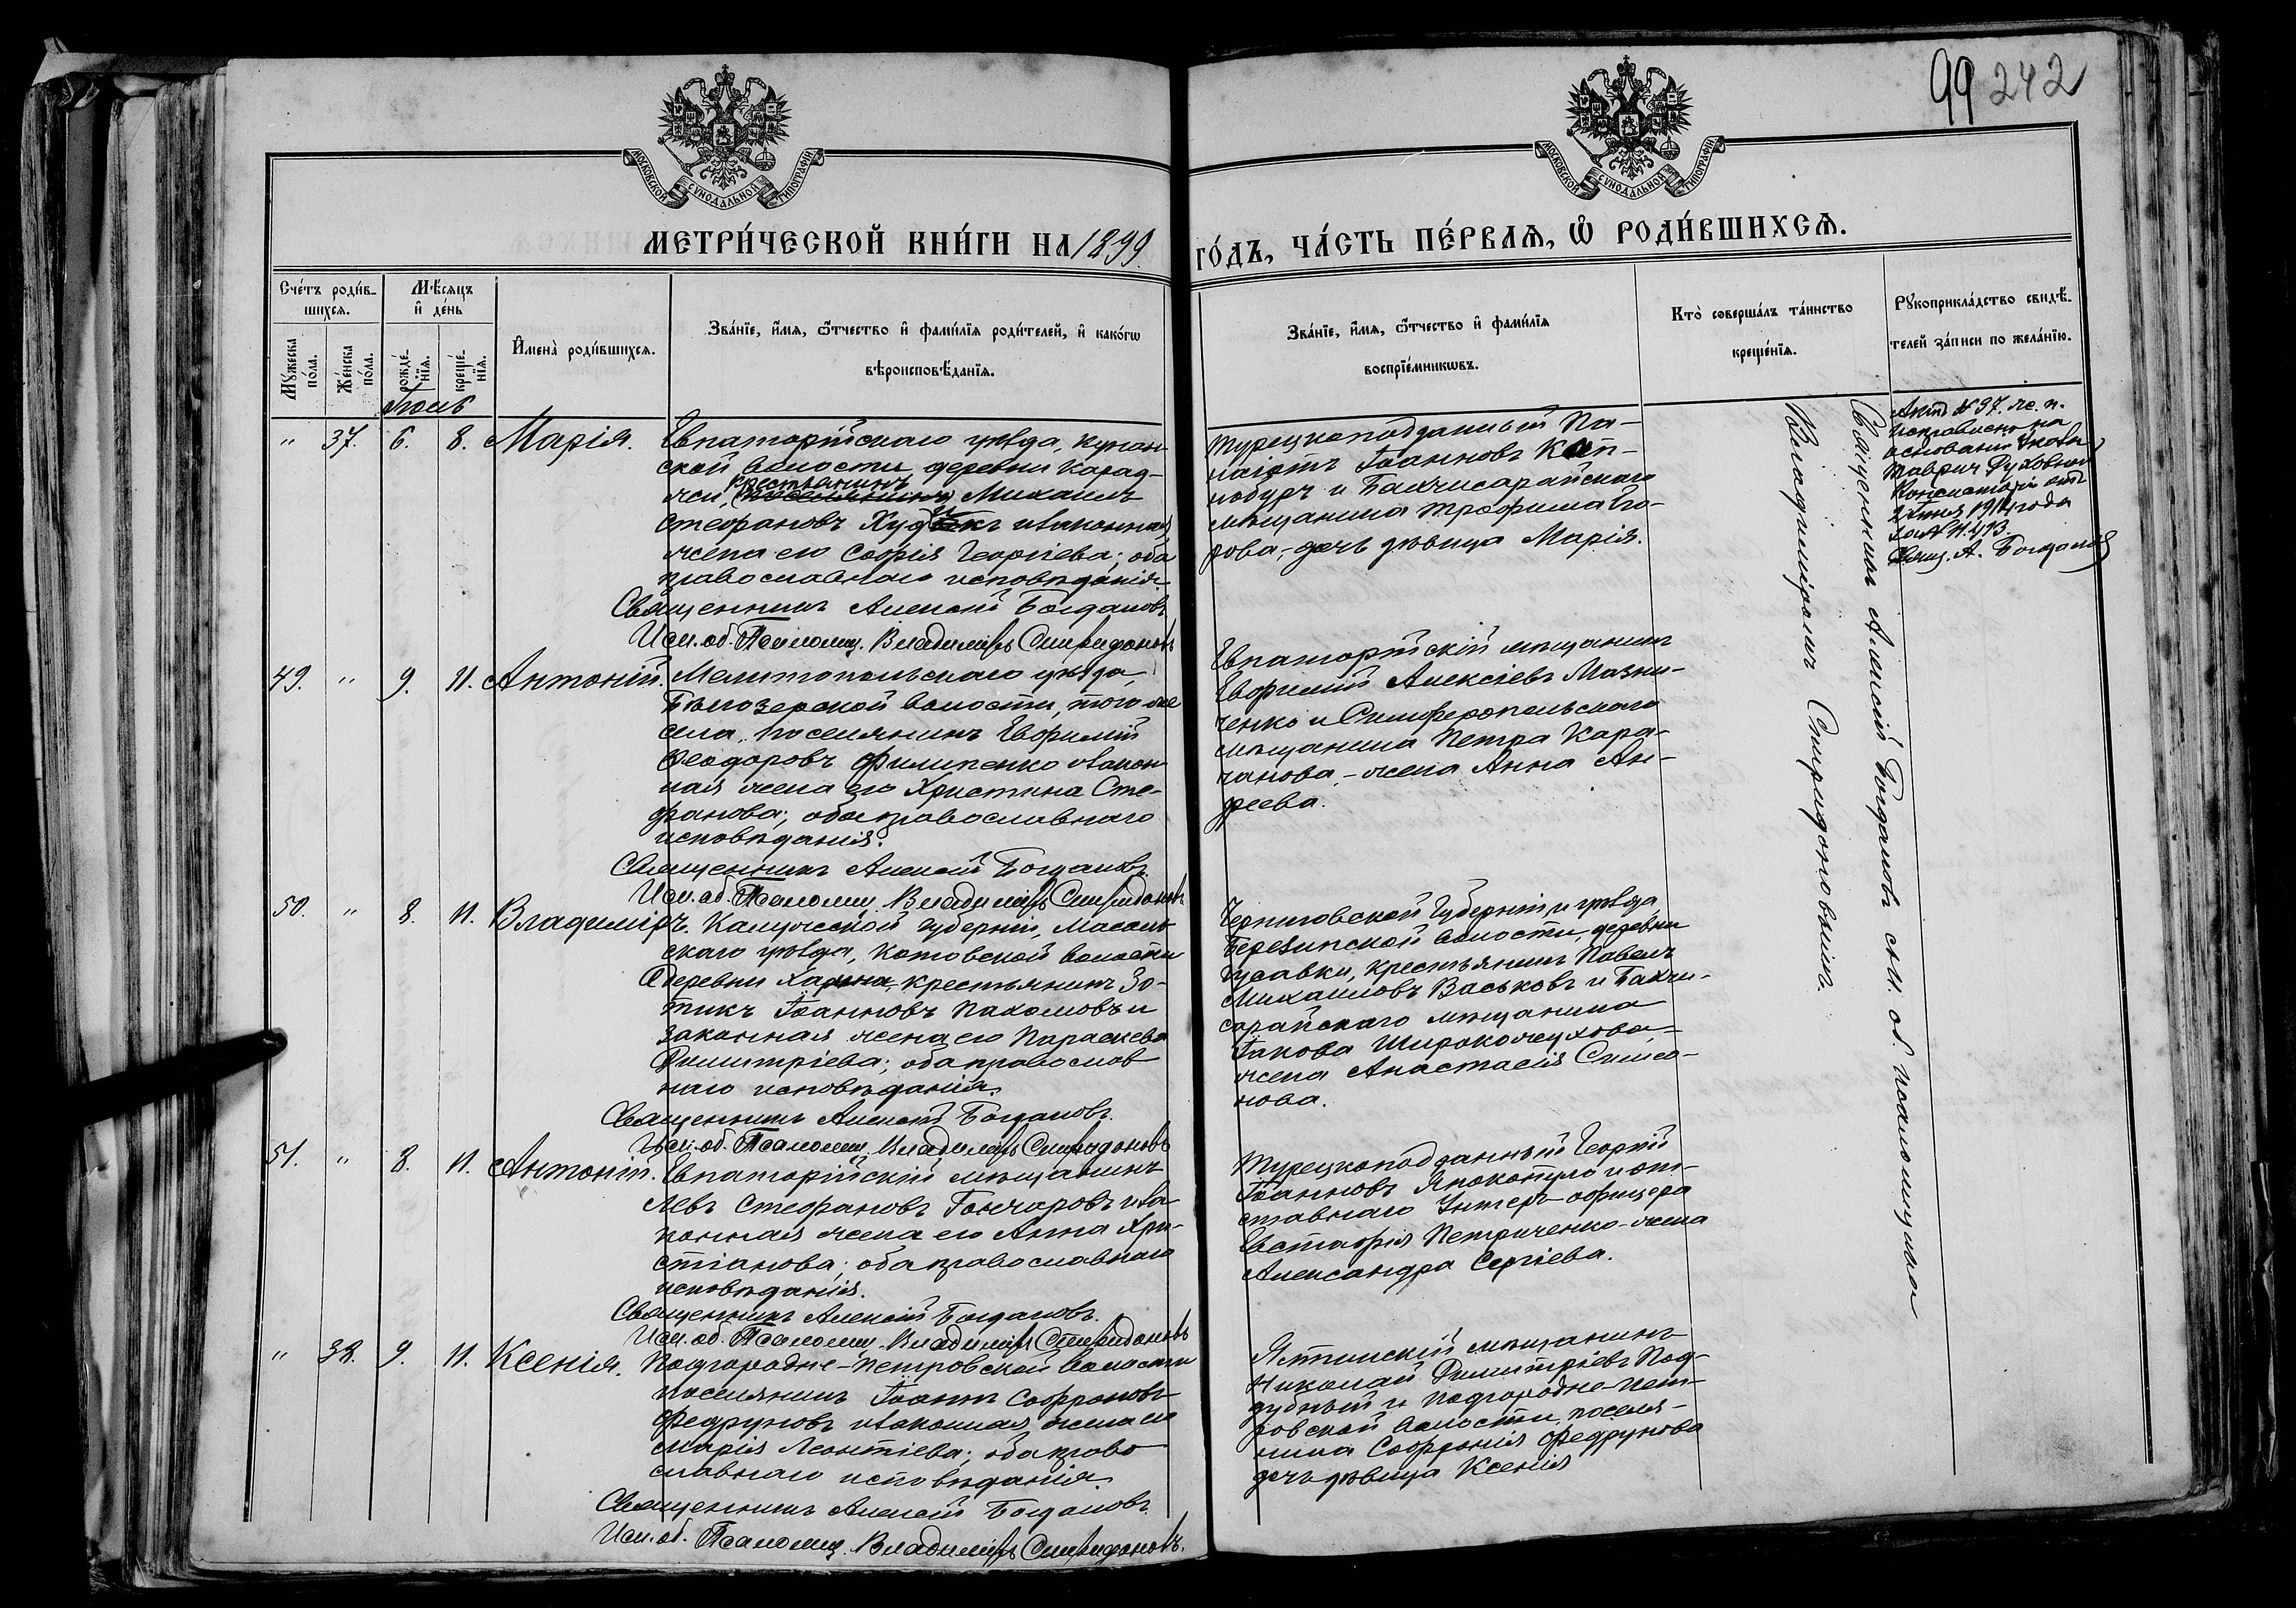 99 242
МОСКОВСКОЙ СѴНОДАЛЬНОЙ ТИПОГРАФІИ
МОСКОВСКОЙ СѴНОДАЛЬНОЙ ТИПОГРАФІИ
МЕТРИ́ЧЕСКОЙ КНИ́ГИ НА 1899
ГО́ДЪ, ЧА́СТЬ ПЕ́РВАЯ, Ѿ РОДИ́ВШИХСЯ.
Сче́тъ роди́в-
шихся.
Мꙋ́жеска по́ла.
Же́нска по́ла.
Мѣ́сяцъ и҆ де́нь
рожде́-нїя.
креще́-нїя.
И҆мена̀ роди́вшихся.
Зва́нїе, и҆́мя, ѻ҆́тчество и҆ фами́лїя роди́телей, и҆ како́гѡ
вѣроисповѣ́данїя.
Зва́нїе, и҆́мя, ѻ҆́тчество и҆ фами́лїя
воспрїе́мникѡвъ.
Кто̀ соверша́лъ та́инство
креще́нїя.
Рꙋкоприкла́дство свидѣ́-
телей за́писи по жела́нїю.
" 37. 6. 8. Марія.
Евпаторійскаго уѣзда, Курман
ской волости деревни Карад-
жи, крестьянинъ Михаилъ
Стефановъ и законная
жена его Софія Георгіева; оба
православнаго исповѣданія.
Священникъ Алексій Богдановъ
Исп. об. Псаломщ. Владиміръ Спиридоновъ
Турецкоподданный Па-
наіотъ Іоанновъ Кап-
нобуръ и Бахчисарайскаго
мѣщанина Трофима Го-
рова,-дочь дѣвица Марія.
Актъ № 37. ж. п.
исправленъ на
основаніи Указа
Таврич. Духовной
Консисторіи отъ
1914 года
за №
Свящ. А. Богдановъ
49. " 9. 11. Антоній.
Мелитопольскаго уѣзда,
Бѣлозерской волости, того же
села, поселянинъ Евфимій
Ѳеодоровъ Филипенко и закон
ная жена его Христина Сте-
фанова; оба православнаго
исповѣданія.
Священникъ Алексій Богдановъ.
Исп. об. Псаломщ. Владиміръ Спиридоновъ
Евпаторійскій мѣщанинъ
Евфимій Алексіевъ Мазни-
ченко и Симферопольскаго
мѣщанина Петра Кара-
чанова,-жена Анна Ан-
дреева.
50. " 8. 11. Владиміръ.
Калужской губерніи, Масаль
скаго уѣзда, Котовской волости
деревни крестьянинъ Зо-
тикъ Іоанновъ Пахомовъ и
законная жена его Параскева
Димитріева; оба православ
наго исповѣданія.
Священникъ Алексій Богдановъ.
Исп. об. Псаломщ. Владиміръ Спиридоновъ
Черниговской Губерніи и уѣзда
Березинской волости, деревни
Гусавки, крестьянинъ Павелъ
Михаиловъ Васьковъ и Бахчи-
сарайскаго мѣщанина
Іакова Широкожухова,-
жена Анастасія Симео-
нова.
51. " 8. 11. Антоній.
Евпаторійскій мѣщанинъ
Левъ Стефановъ Гончаровъ и за-
конная жена его Анна Хри-
стіанова; оба православнаго
исповѣданія.
Священникъ Алексій Богдановъ.
Исп. об. Псаломщ. Владиміръ Спиридоновъ
Турецкоподданный Георгій
Іоанновъ и от-
ставнаго Унтеръ-офицера
Евстафія Петриченко-жена
Александра Сергіева.
" 38. 9. 11. Ксенія.
Подгородне-Петровской волости
поселянинъ Іоаннъ Софроновъ
Федруновъ и законная жена его
Марія Леонтіева; оба право
славнаго исповѣданія.
Священникъ Алексій Богдановъ.
Исп. об. Псаломщ. Владиміръ Спиридоновъ.
Ялтинскій мѣщанинъ
Николай Димитріевъ Под-
дубный и Подгородне-Пет-
ровской волости, поселя-
нина Софронія Федрунова
дочь дѣвица Ксенія
Священникъ Алексій Богдановъ съ и. об. псаломщика
Владиміромъ Спиридоновымъ.